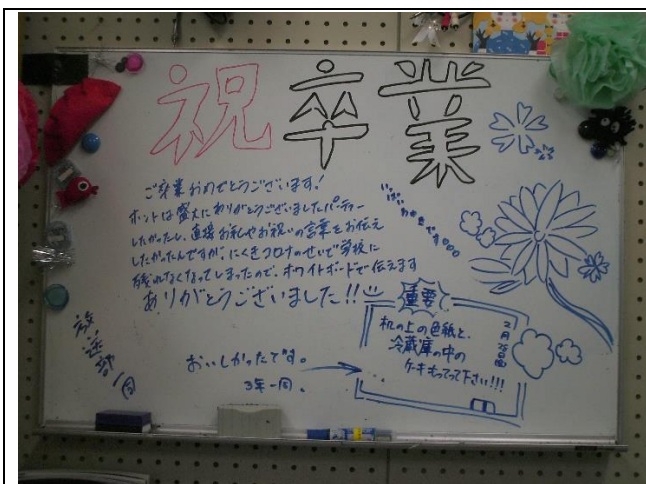 祝卒業
ご卒業おめでとうございます!
ホントは盛大にありがとうございましたパーティー
したかったし、直接お礼やお祝いの言葉をお伝え
したかったんですが、にくきコロナのせいで学校に
残れなくなってしまったので、ホワイトボードで伝えます
ありがとうございました!!
放送部一同
重要
2月28日
机の上の色紙と、
冷蔵庫の中の
ケーキもってって下さい!!!
おいしかったです。
3年一同、